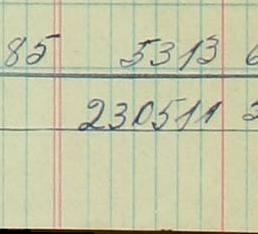 85 5313 6
230511